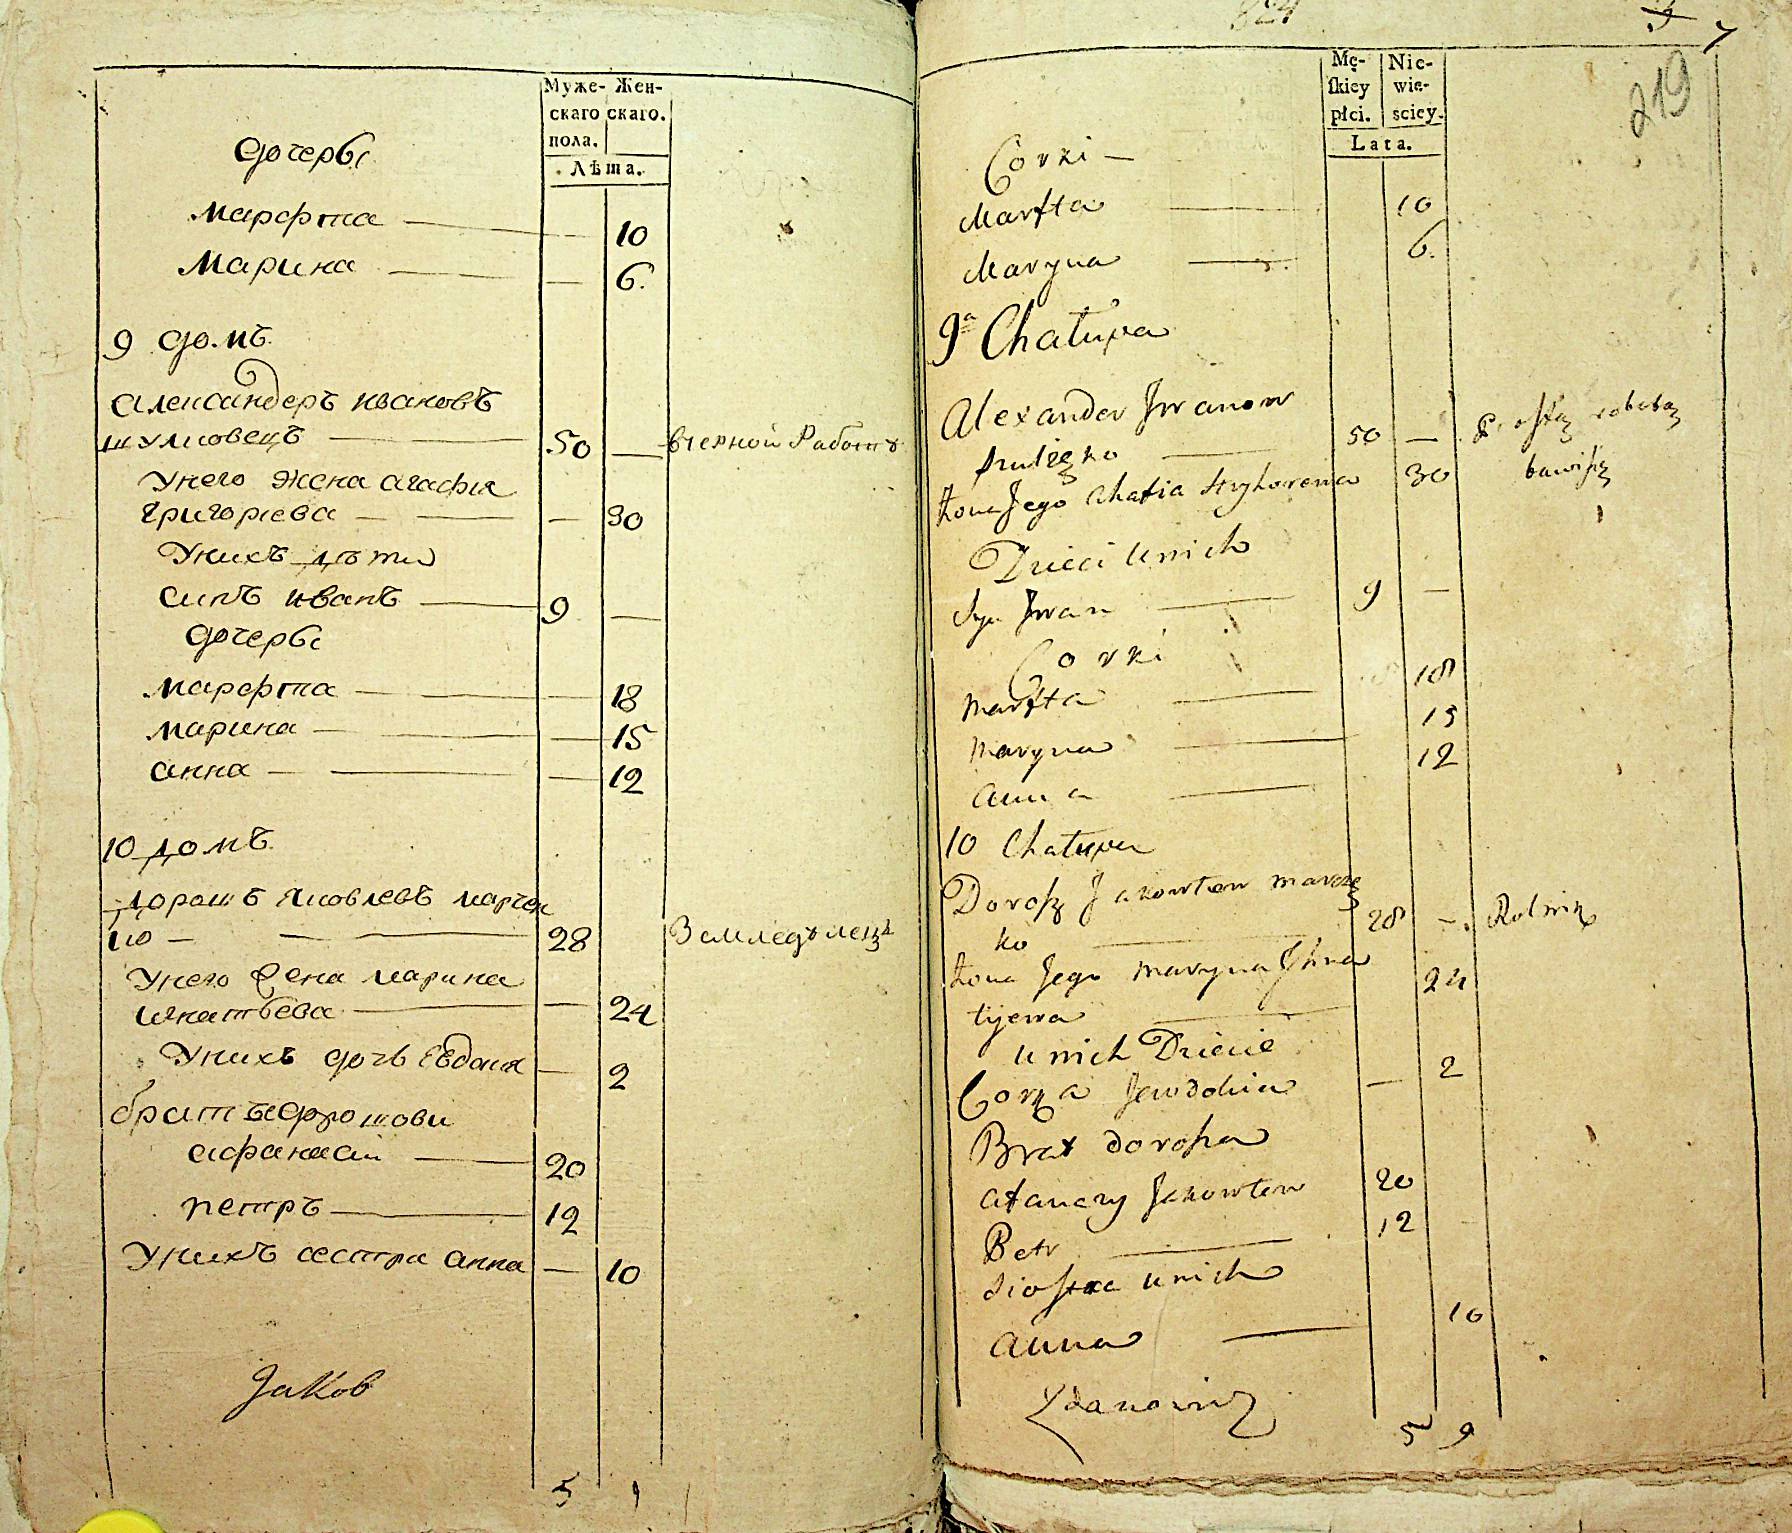 Муже-
скаго
пола.
Жен-
скаго.
Лѣта.
дочеры
марфта — 10
марина — 6.
9 домъ
александеръ ивановъ
шулковецъ — 50 — вчерной работѣ
Унего жена агафия
григорева — — 30
Унихъ дѣти
синъ иванъ — 9 —
дочеры
марфта — — 18
марина — — 15
анна — — 12
10 домъ
дорошъ яковлевъ марчен
ко — 28 Земледѣлецъ
Унего жена марина
игнатьева — — 24
Унихъ дочь Евдокия — 2
братья дорошови
афанасий — 20
петръ — 12
Унихъ сестра анна — 10
Jakob
5
824
7
219
Mę-
ſkiey
płci.
Nie-
wie-
sciey.
Lata.
Corki —
Marfta — 10
Maryna — 6.
9a Chałupa
Alexander Jwanow
50 — Prostą robotą
Żona Jego Ahafia Hryhorewa 30 bawi się
Dzieci u nich
Syn Jwan — 9 —
Corki
Marfta — 18
Maryna — 15
Anna — 12
10 Chałupa
Dorosz Jakowlew Marcze
ko — 28 — Rolnik
Żona Jego Maryna Jhna
tijewa — 24
u nich Dziecie
Corka Jewdohia — 2
Brat dorosza
Atanazy Jakowlew 20
Petr — 12
Siostra u nich
Anna — 10
Zdanowicz
5 9